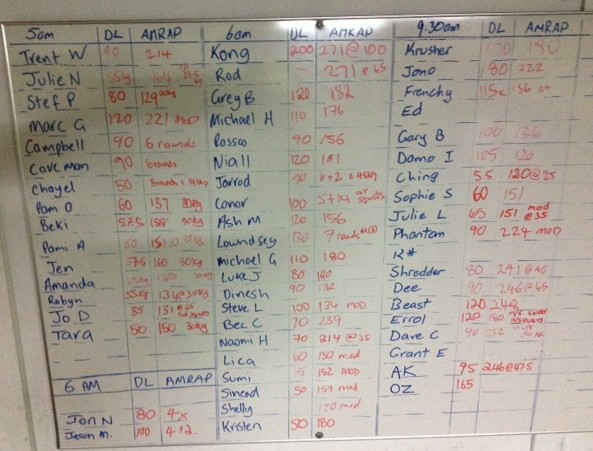 5am DL AMRAP
Trent W 214
Julie N
Stef P 80 129
Marc G 120 221 MOD
Campbell 90 6 rounds
Cave man 90 6 rounds
Chayel 50
Pam O 60 137 30kg
Beki 57.5 158 30kg
Pami A
Jen 57.5 160 30kg
Amanda
Robyn 55kg 134@30kg
Jo D 85
Tara 50 150 30kg
6 AM DL AMRAP
Jon N 80 4x
Jason M. 100 4+2
6am DL AMRAP
Kong 200 271@100
Rod 271@65
Greg B 120 182
Michael H 110 176
Rossco 90 156
Niall 120 181
Jarrod
Conor 100 5+14
Ash M 120 156
Lowndsey 7 rounds MOD
Michael G 110 180
Luke J 80
Dinesh 90
Steve L 100 134 MOD
Bec C 70 239
Naomi H 70 214@35
Lica 60 150 mod
Sumi 152 MOD
Sinead 50 159 mod
Shelly 120 mod
Kristen 50 180
9.30am DL AMRAP
Krusher 170 180
Jono 180 222
Frenchy
Ed
Gary B 100 136
Damo I 105 120
Ching 55 120@25
Sophie S 60 151
Julie L 65 151 mod @35
Phantom 90 224 MOD
K*
Shredder 80 241@40
Dee 90 246@45
Beast 120 248
Errol 120
Dave C
Grant E
AK 95 246@47.5
OZ 165